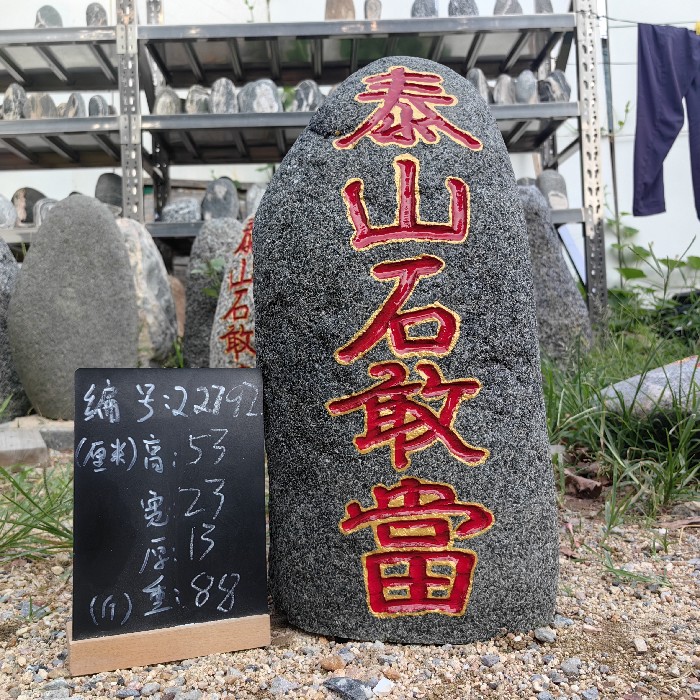 泰山石敢當
泰山石敢
编号:22792
(厘米)高:53
宽:23
厚:13
(斤)重:88